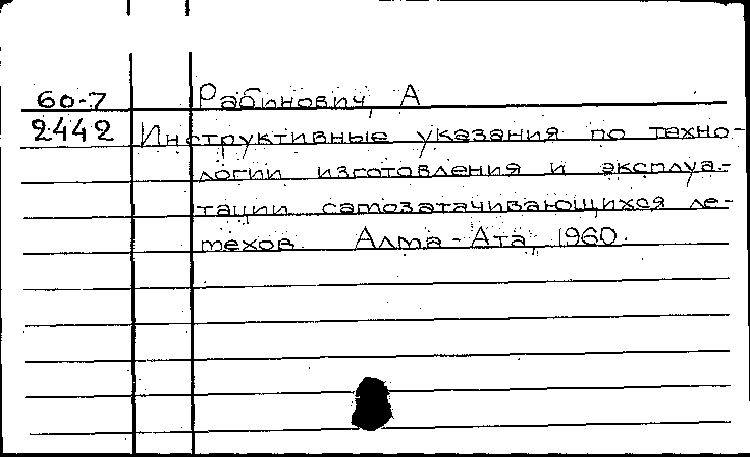 60-7 Рабинович, А
2442 Инструктивные указания по техно-
логии изготовления и эксплуа-
тации самозатачивающихся ле-
мехов. Алма-Ата, 1960.